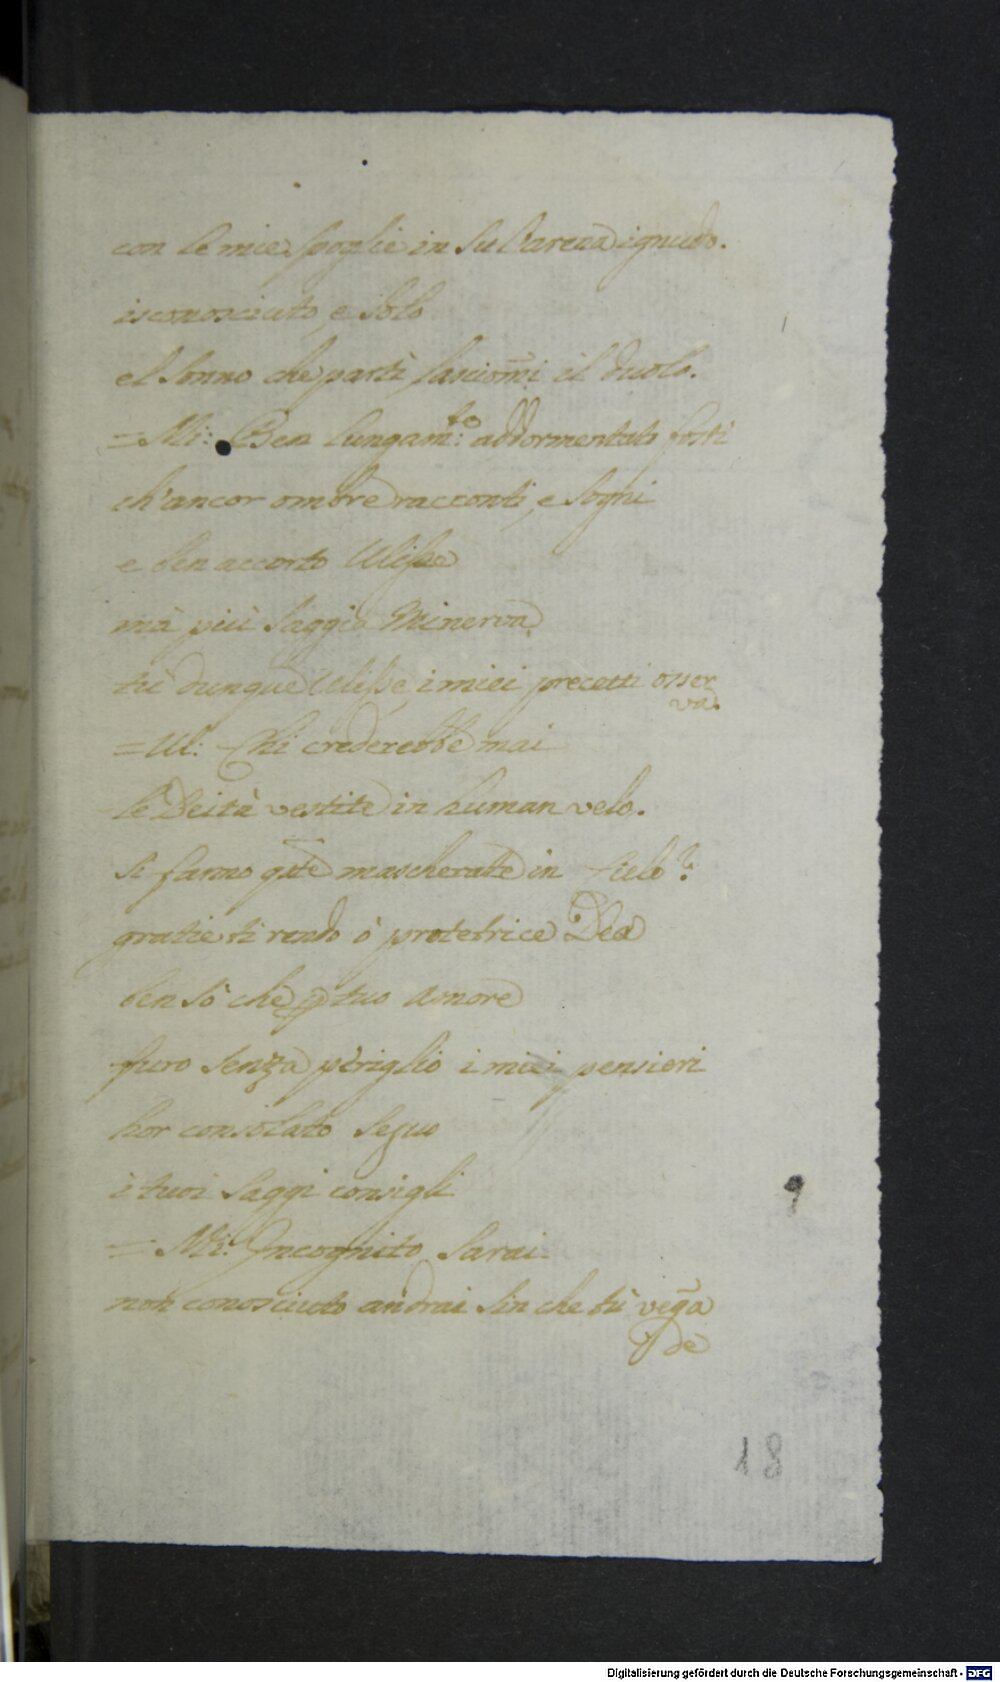 con le mie spoglie in su l'arena ignudo.
isconosciuto, e solo
el sonno che partì lasciom̄i il duolo.
= Mi: Ben lungam.to: addormentato fosti
ch'ancor ombre racconti, e sogni
e ben accorto Ulisse
mà più saggia Minerva
tù dunque Ulisse, i miei precetti osser
va.
= Ul: Chi crederebbe mai
le Deità vestite in human velo.
si fanno qste mascherate in cielo?
gratie ti rendo ò protetrice Dea
ben sò che p tuo Amore
furo senza periglio i miei pensieri
hor consolato seguo
i tuoi saggi consigli
= Mi: Incognito sarai
non conosciuto andrai sin che tù veg̃a
de
9
18
Digitalisierung gefördert durch die Deutsche Forschungsgemeinschaft - DFG